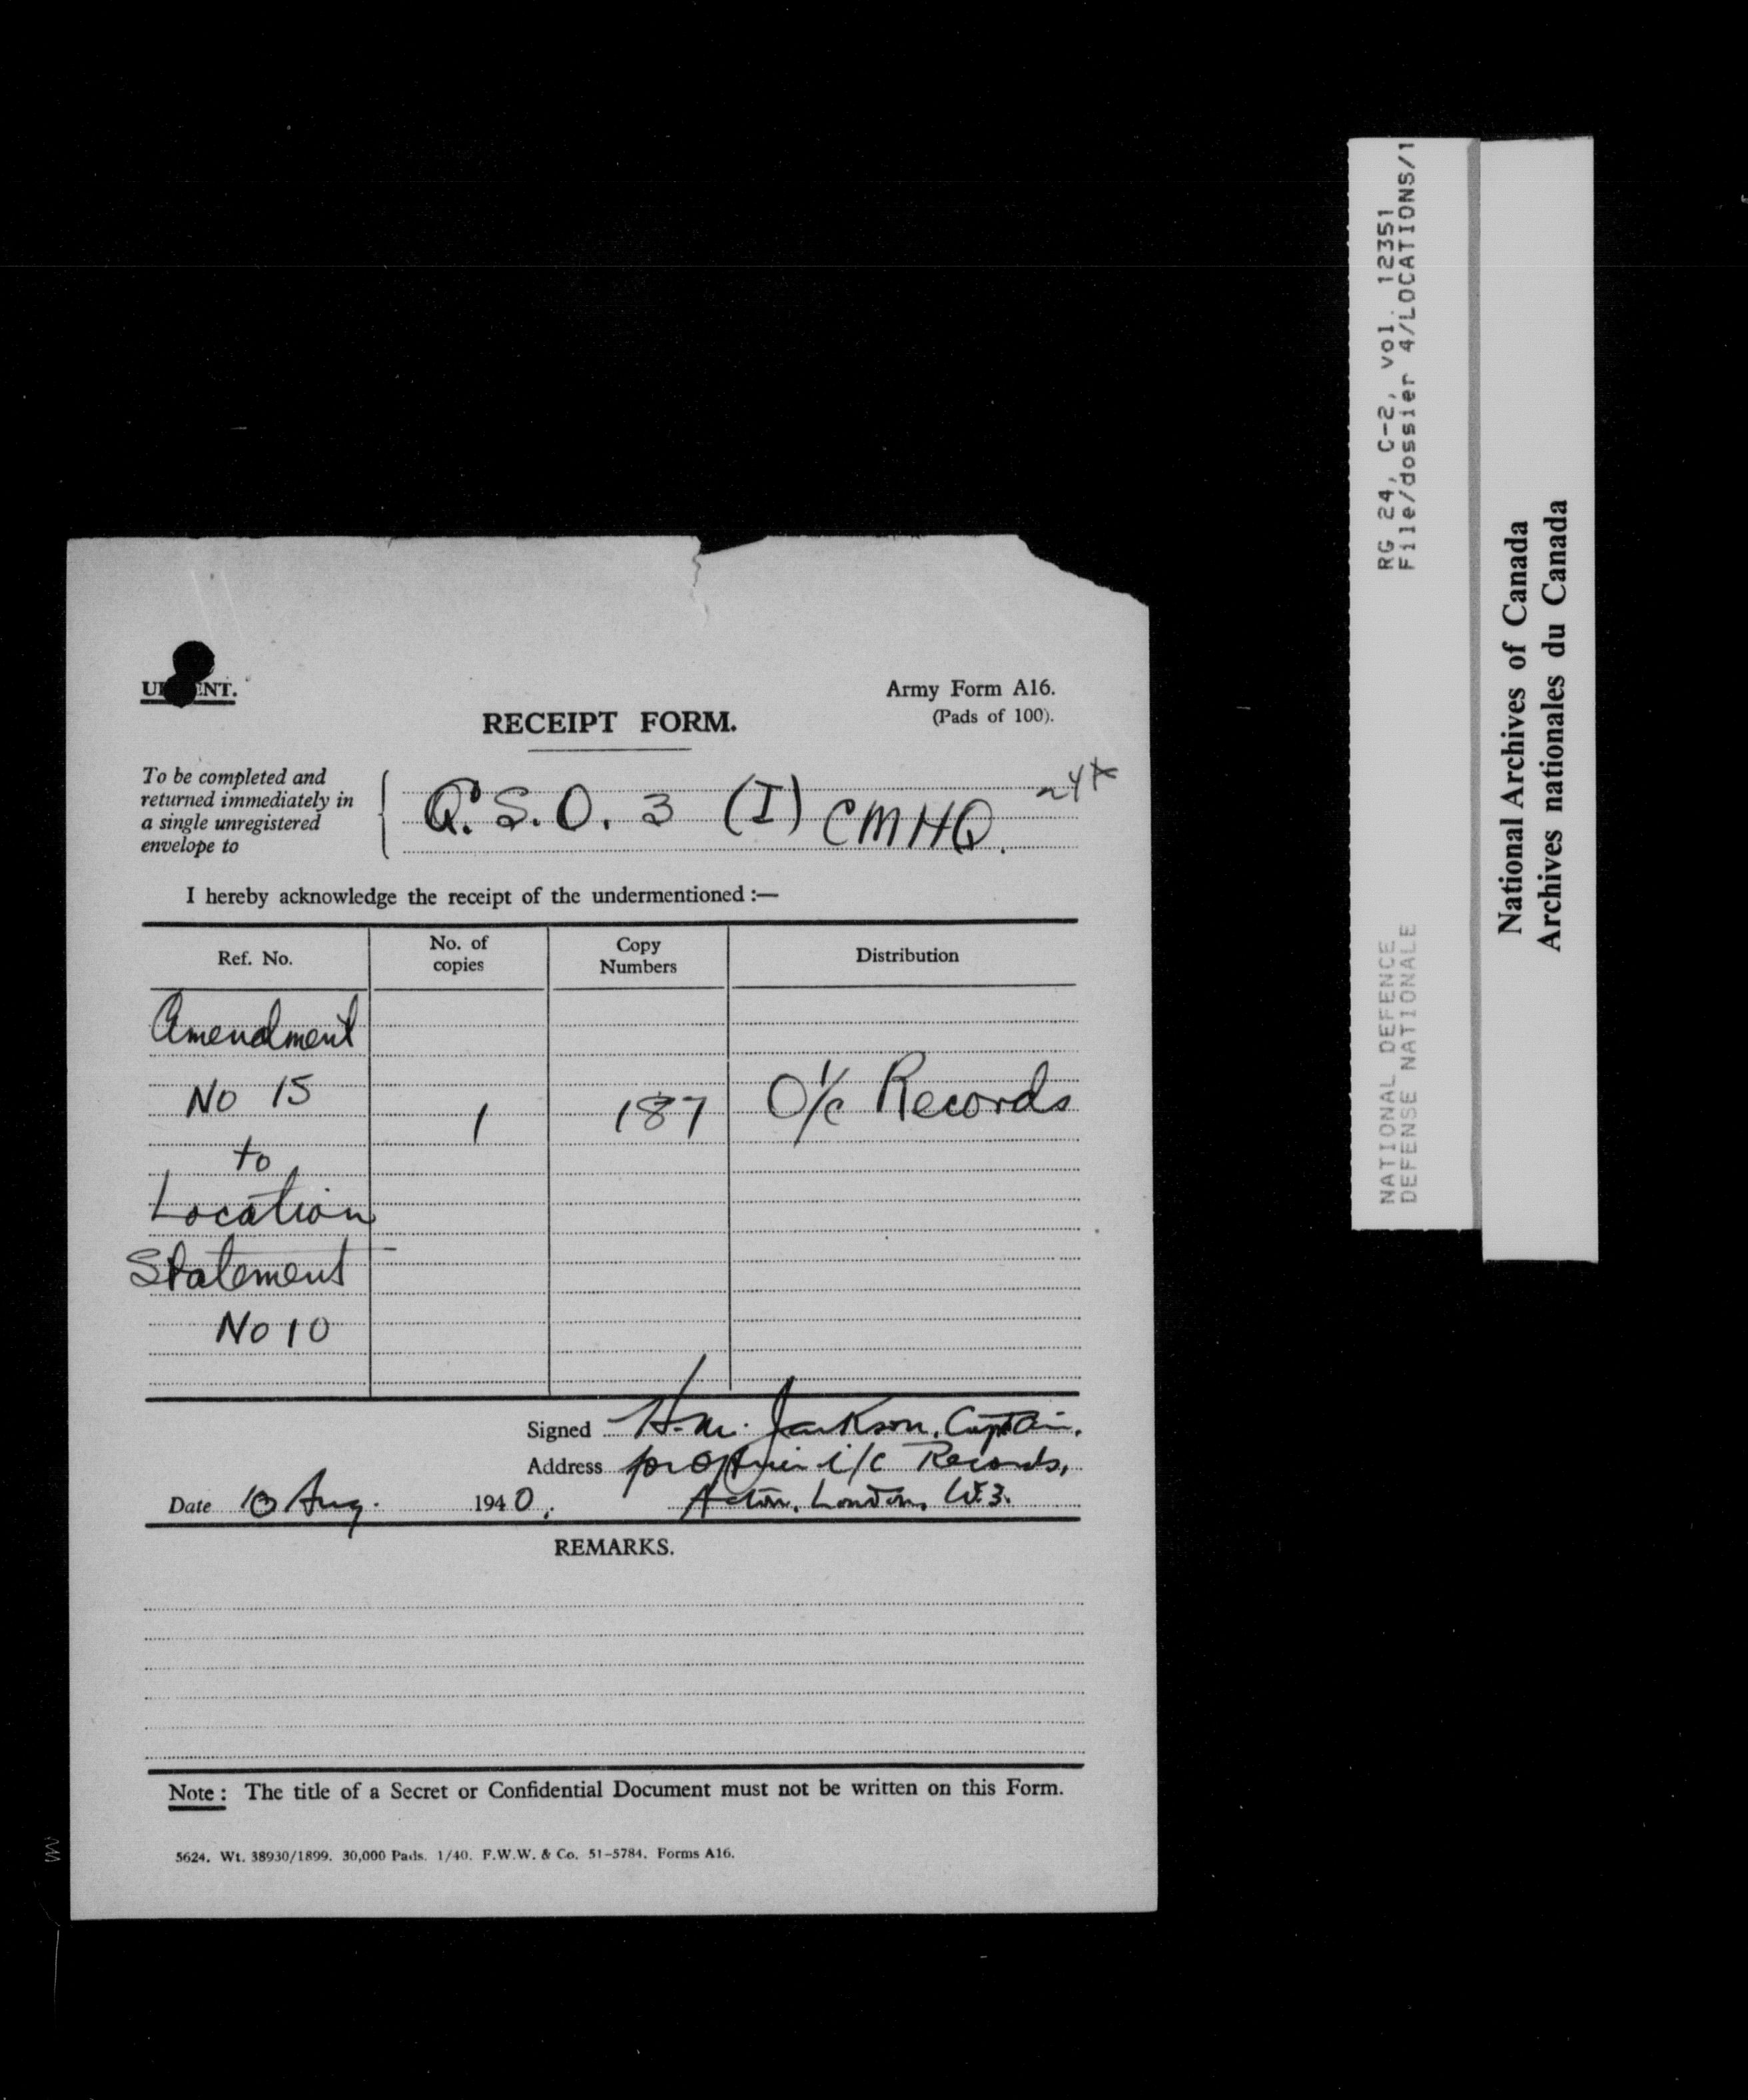 URGENT.
Army Form A16.
(Pads of 100).
RECEIPT FORM.
To be completed and
returned immediately in
a single unregistered
envelope to
G.S.O. 3 (I) CMHQ.
I hereby acknowledge the receipt of the undermentioned :—
Ref. No. No. of copies Copy Numbers Distribution
Amendment
No 15
1 187 O i/c Records
to
Location
Statement
No 10
Signed H.M. Jackson, Captain.
Address for Officer i/c Records,
Date 10 Aug. 1940. Acton, London, W.3.
REMARKS.
Note : The title of a Secret or Confidential Document must not be written on this Form.
5624. Wt. 38930/1899. 30,000 Pads. 1/40. F.W.W. & Co. 51-5784. Forms A16.
RG 24, C-2, vol. 12351
File/dossier 4/LOCATIONS/1
NATIONAL DEFENCE
DEFENSE NATIONALE
National Archives of Canada
Archives nationales du Canada